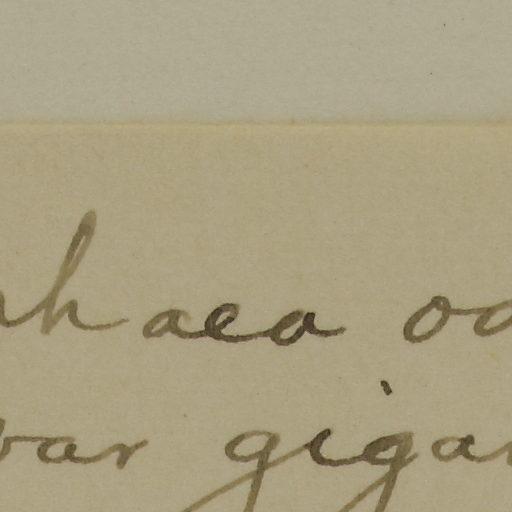 phaea od
var gigan